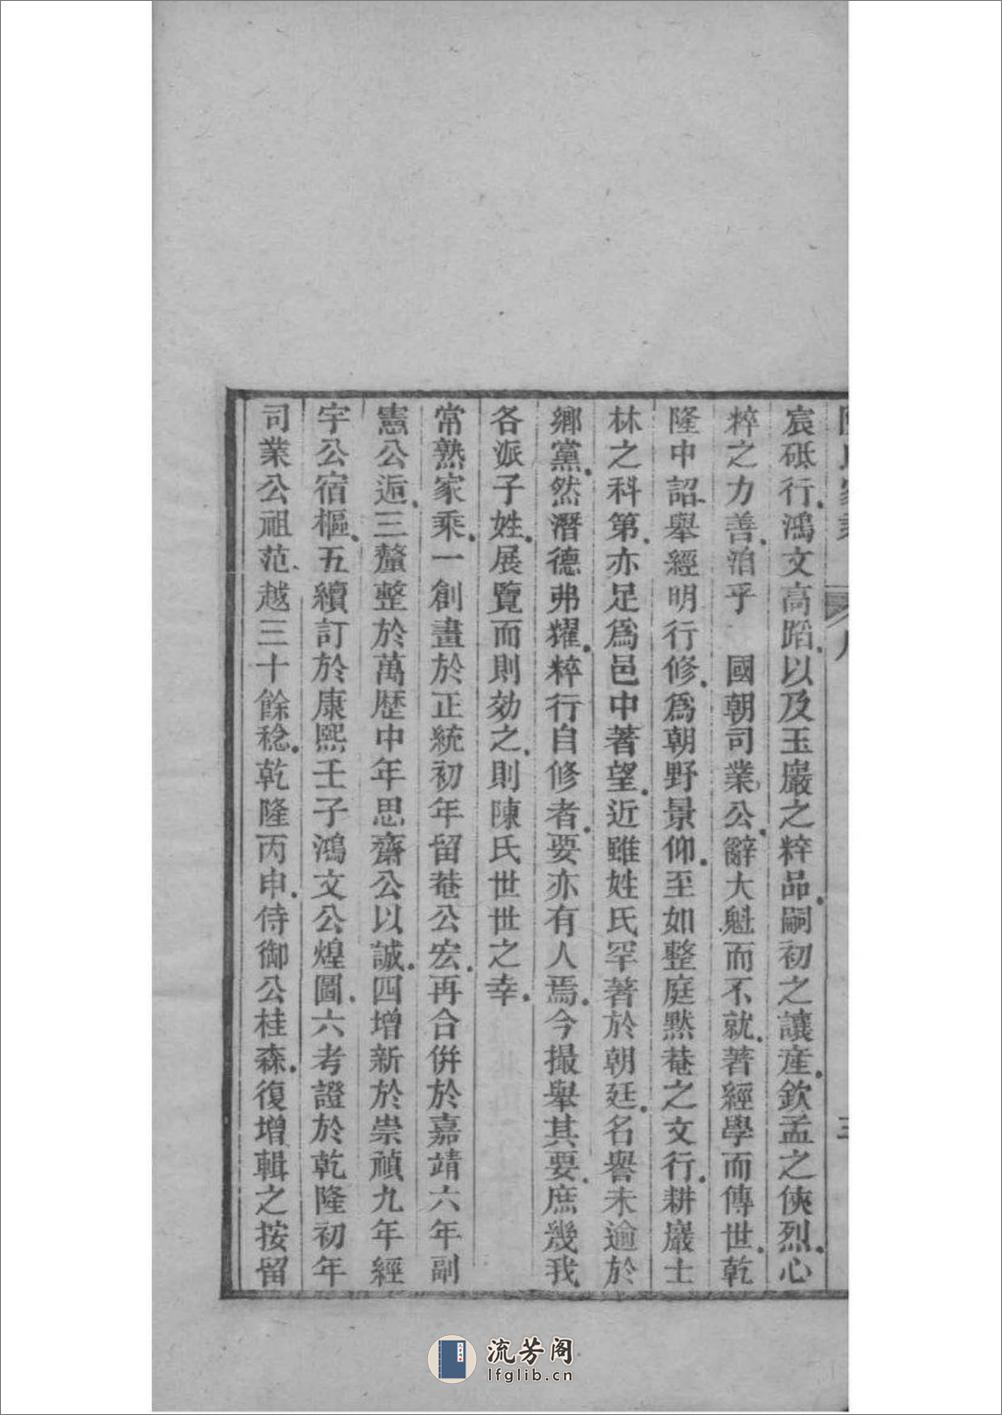 宸砥行鴻文高蹈以及玉巖之粹品嗣初之讓産欽孟之俠烈心
粹之力善洎乎　國朝司業公辭大魁而不就著經學而傳世乾
隆中詔舉經明行修爲朝野景仰至如整庭黙菴之文行耕巖士
林之科第亦足爲邑中著望近雖姓氏罕著於朝廷名譽未逾於
鄕黨然潛德弗耀粹行自修者要亦有人焉今撮舉其要庶幾我
各派子姓展覽而則効之則陳氏世世之幸
常熟家乘一創畫於正統初年留菴公宏再合併於嘉靖六年副
憲公逅三釐整於萬歴中年思齋公以誠四增新於崇禎九年經
宇公宿樞五續訂於康熙壬子鴻文公煌圖六考證於乾隆初年
司業公祖范越三十餘稔乾隆丙申侍御公桂森復增輯之按留
流芳阁
lfglib.cn